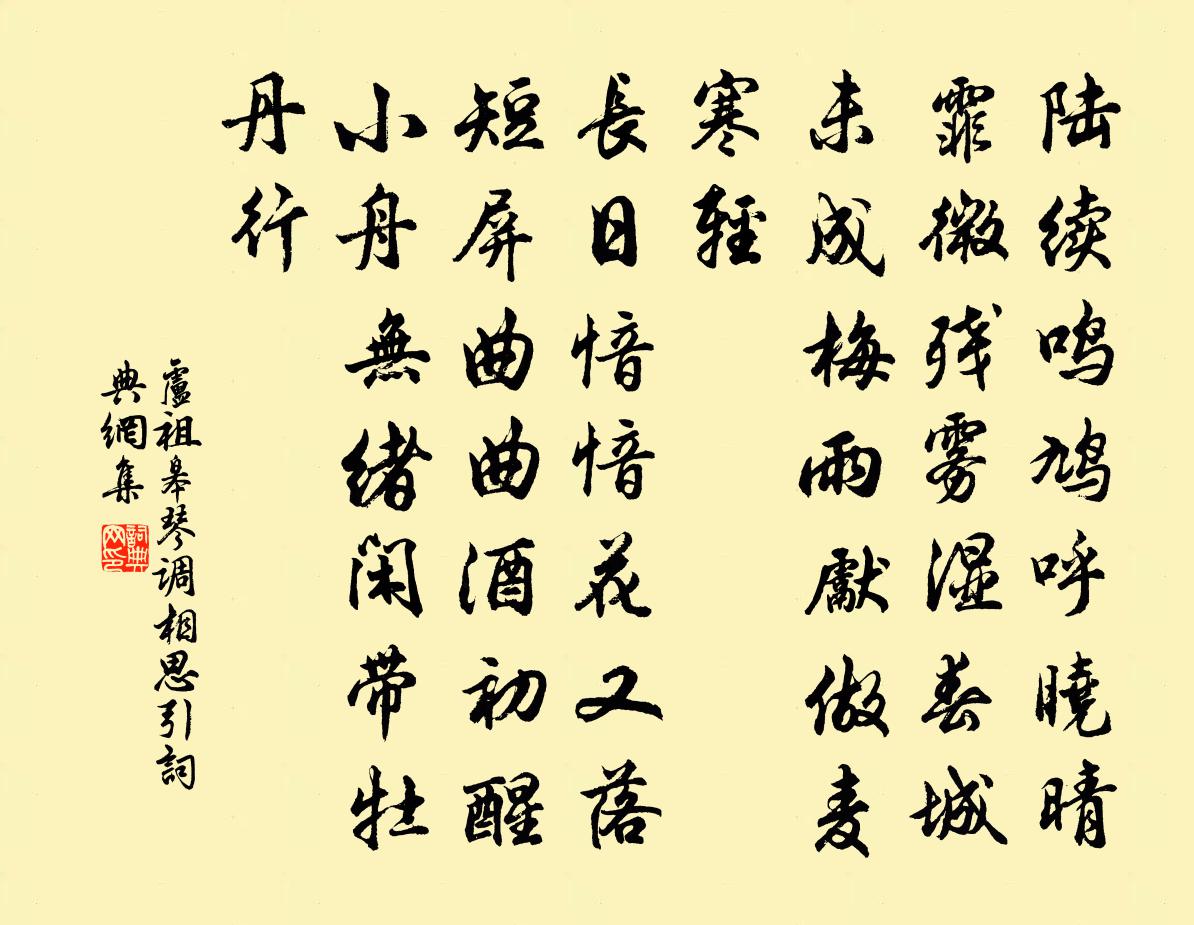 陆续鸣鸠呼曉晴
霏微残雾湿春城
未成梅雨獻做麦
寒輕
長日愔愔花又落
短屏曲曲酒初醒
小舟無緒闲带牡
丹行
盧祖皋琴调相思引詞
典網集
詞典网印